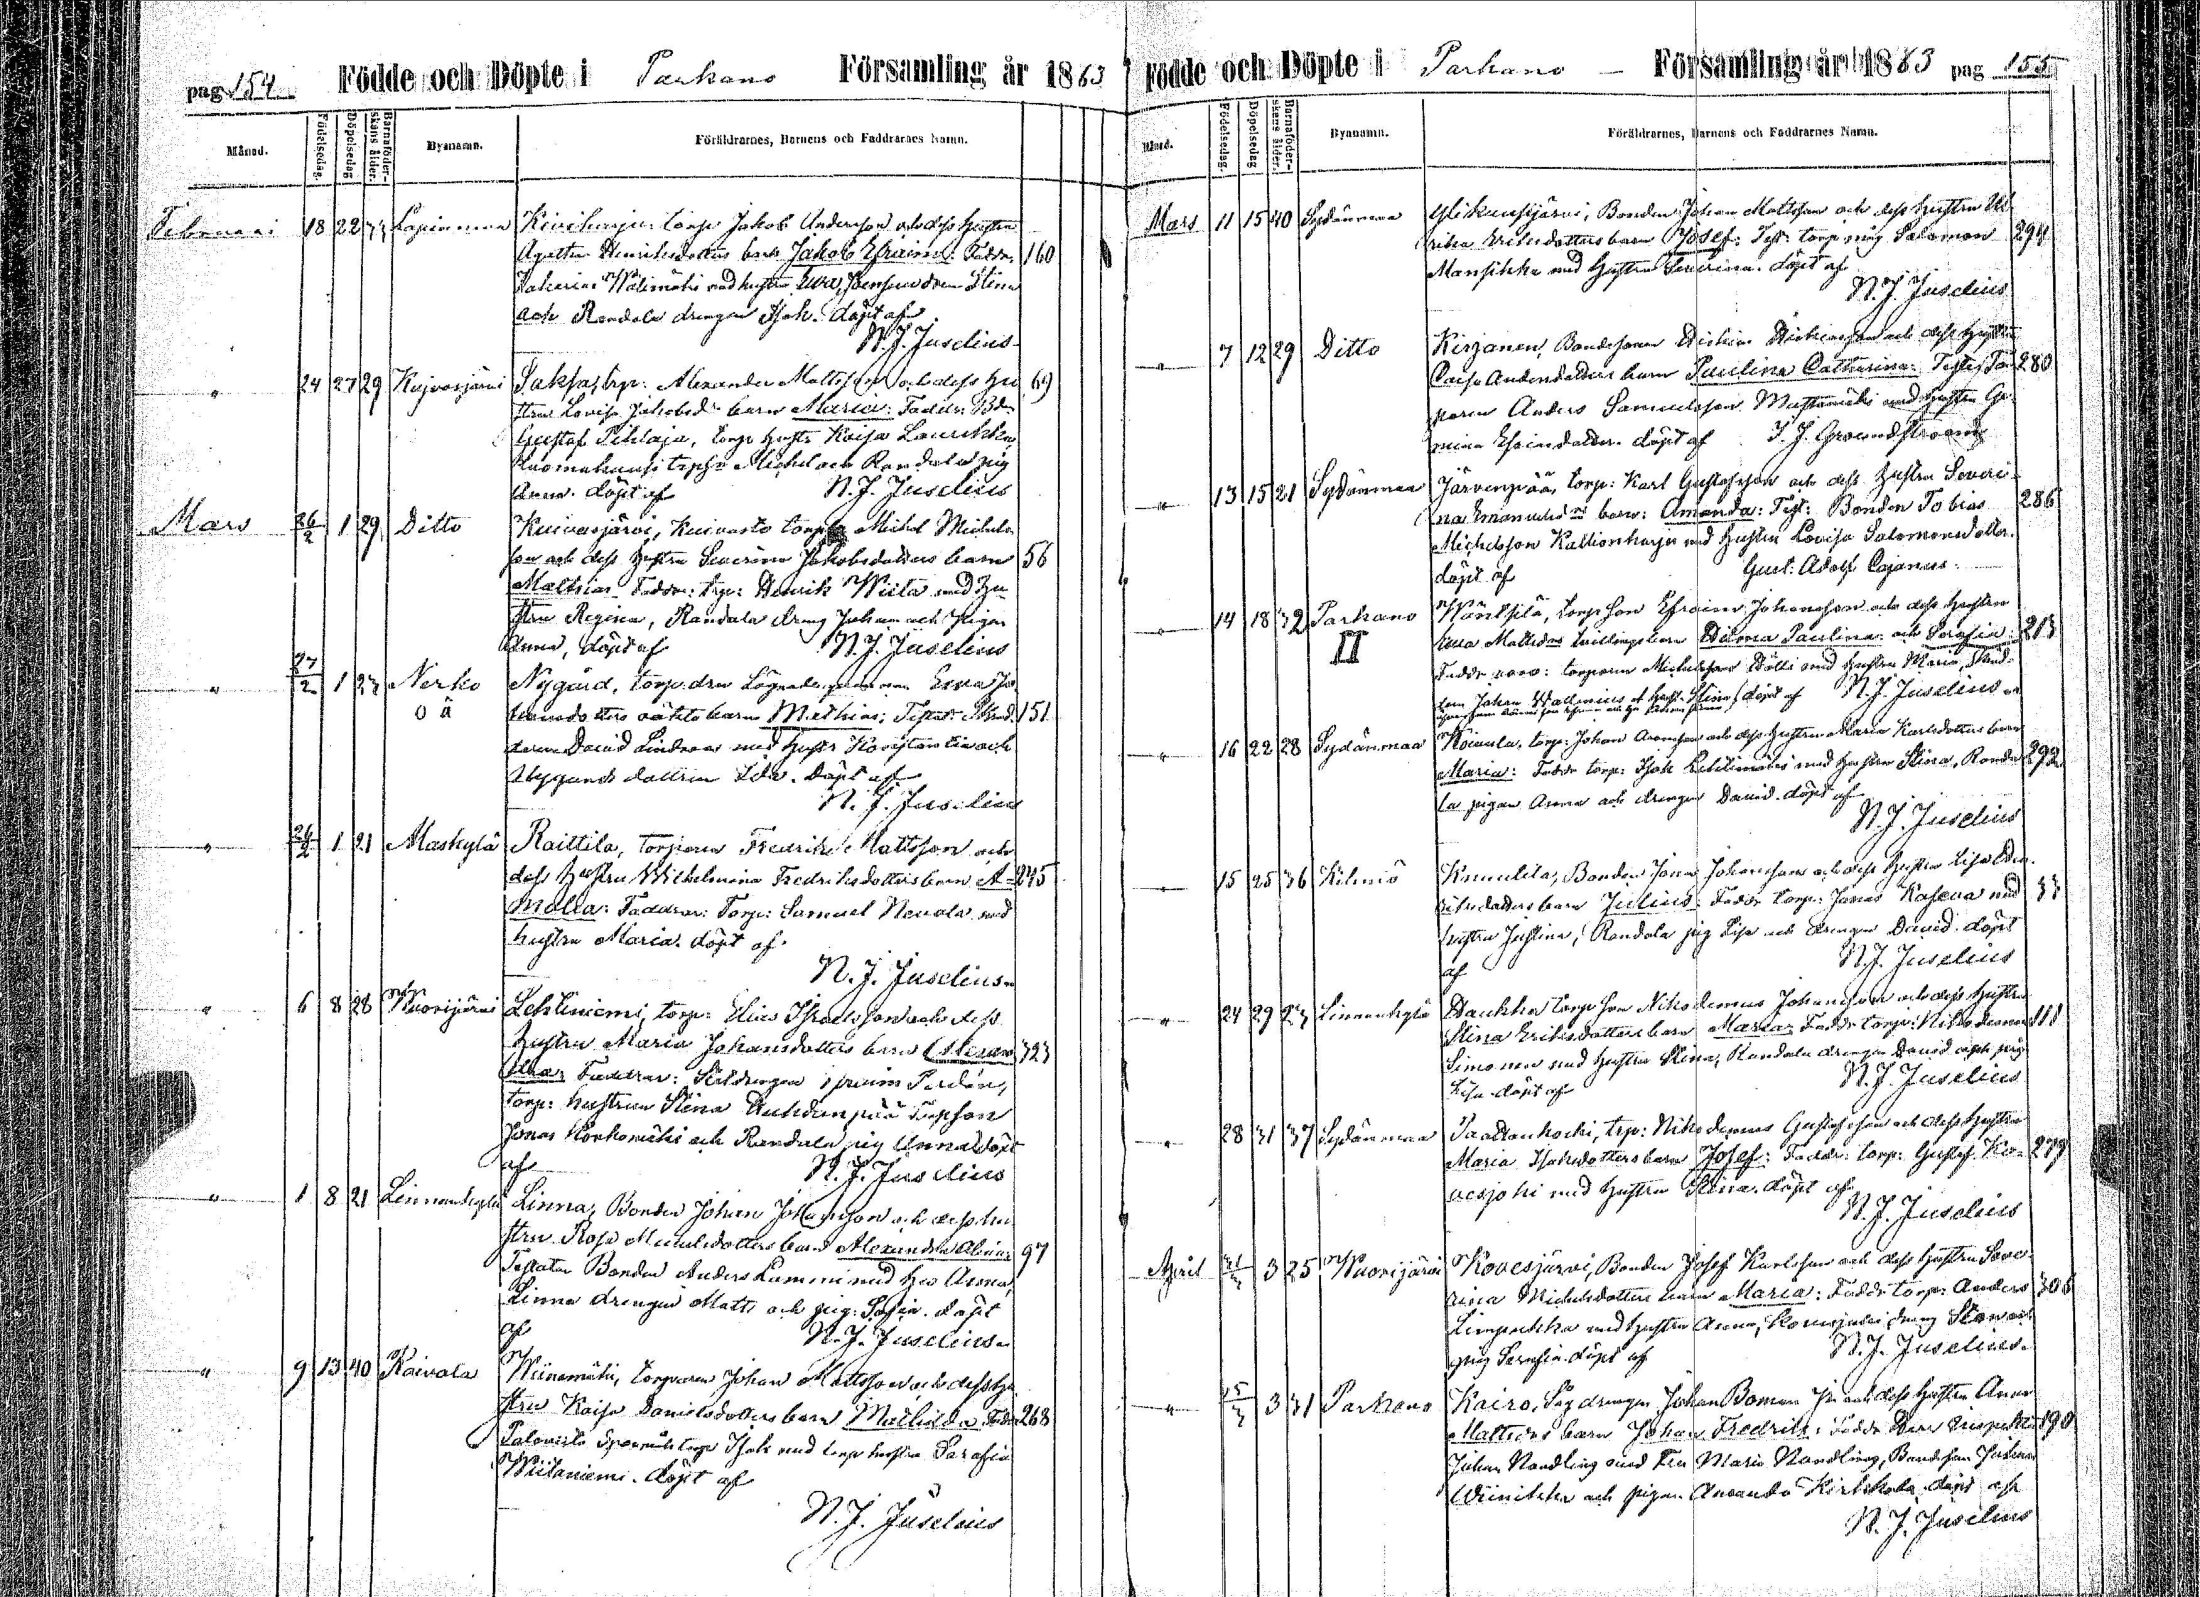 pag 154 Födde och Döpte i Parkano Församling år 1863
Månad. Födelsedag. Döpelsedag Barnaföder-skans ålder. Bynamn. Föräldrarnes, Barnens och Faddrarnes Namn.
Februari 18 22 33 Lapinneva Kiviharju torp: Jakob Andersson och dess hustru
Agatha Henriksdotters barn Jakob Efraim: Faddr: 160
Zakarias Wälimäki med hustru Eva, Stina
och Randala drengen Isak. döpt af
N. J. Juselius
" 24 27 29 Kujvasjärvi Saksa, trp: Alexander Mattsson och dess hu 69
stru Lovisa Jakobsdr barn Maria: Faddr:
Gustaf Pihlaja, torp: hustr Kaisa Laurikka,
Michel och Randala pig
Anna. döpt af N. J. Juselius
Mars 26/2 1 29 Ditto Kuivasjärvi, Kuivasto torp Michel Michels
son och dess hustru Severina Jakobsdotters barn 56
Mathias Faddr: trp: Henrik Wiita med hu
stru Regina, Randala dreng Johan och pigan
Anna, döpt af N. J. Juselius
" 27/2 1 23 Nerko Nygård, torp.dra Eeva Jo
o ä hansdotters oäkta barn Mathias: Testat: 151
David Lindroos med hustr Konstantia och
Nygårds dottren Ida. döpt af
N. J. Juselius
" 24/2 1 21 Maskylä Raittila, torparen Fredrik Mattsson och
dess hustru Wilhelmina Fredriksdotters barn A- 245
malia: Faddrar: Torp: Samuel Nevala med
hustru Maria. döpt af
N. J. Juselius
" 6 8 28 Wuorijärvi Lehtiniemi, torp: Elias Isaksson och dess
hustru Maria Johansdotters barn Alexan 323
dra: Faddrar:
torp: hustrun Stina
Jonas Korkomäki och Randala pig Anna döpt
af N. J. Juselius
" 1 8 21 Linnankylä Linna, Bonden Johan Johansson och dess hu
stru Rosa Michelsdotters barn Alexandra Alina: 97
Testator Bonden Anders Lammi med hu Anna,
Linna drengen Matts och pig: Sofia. döpt
af N. J. Juselius
" 9 13 40 Kaivola Wiinamäki, torparen Johan Mattsson och dess hu
stru Kaisa Danielsdotters barn Mathilda Faddr 268
Isak med torp hustru Serafia
Wiitaniemi. döpt af
N. J. Juselius
Födde och Döpte i Parkano Församling år 1863 pag 155
Månd. Födelsedag. Döpelsedag Barnaföder-skans ålder. Bynamn. Föräldrarnes, Barnens och Faddrarnes Namn.
Mars 11 15 40 Sydänmaa Ylikuusjärvi, Bonden Johan Mattsson och dess hustru Ul
rika Eriksdotters barn Josef: Test: torp: måg Salomon 294
Mansikka med hustru Severina. döpt af
N. J. Juselius
" 7 12 29 Ditto Kirjanen, Bondesonen och dess hustru
Caisa Andersdotters barn Paulina Catharina: Testes Tor 280
paren Anders Samuelsson Mustamäki med hustru Ge
mina Efraimsdotter. döpt af I. J. Groundstroem
" 13 15 21 Sydänmaa Järvenpää, torp: Karl Gustafsson och dess hustru Severi
na Emanuelsdr barn: Amanda: Test: Bonden Tobias 286
Michelsson Kallionharju med hustru Lovisa Salomonsdotter.
döpt af Gust: Adolf Cajanus.
" 14 18 32 Parkano Wäntsilä, torp son Efraim Johansson och dess hustru
II Eeva Mattsdrs tvillingebarn Wilma Paulina och Serafia: 213
Faddr voro: torparen Michelsson med hustru Maria,
Johan Wallenius och hustr Stina, döpt af N. J. Juselius
" 16 22 28 Sydänmaa Koivula, torp: Johan Aronsson och dess hustru Maria Karlsdotters barn
Maria: Faddr torp: Isak Lehtimäki med hustru Stina, Randa 292
la pigan Anna och drengen David. döpt af
N. J. Juselius
" 15 25 36 Kihniö Knuutila, Bonden Jonas Johansson och dess hustru Lisa Hen
riksdotters barn Julius: Faddr torp: Jonas Kaseva med 33
hustru Justina, Randala pig Lisa och drengen David. döpt
af N. J. Juselius
" 24 29 23 Linnankylä Haukka torp son Nikodemus Johansson och dess hustru
Stina Eriksdotters barn Maria: Faddr torp: Nikodemus 111
Simonen med hustru Stina, Randala drengen David och pig
Lisa döpt af N. J. Juselius
" 28 31 37 Sydänmaa Paaltaukoski, trp: Nikodemus Gustafsson och dess hustru
Maria Isaksdotters barn Josef: Faddr: torp: Gustaf Ko- 279
vesjoki med hustru Stina. döpt af
N. J. Juselius
April 31/3 3 25 Wuorijärvi Kovesjärvi, Bonden Josef Karlsson och dess hustru Seve
rina Michelsdotters barn Maria: Faddr torp: Anders 306
med hustru Anna, dreng
pig Serafia döpt af N. J. Juselius.
" 25/3 3 31 Parkano Kairo, Sågdrengen Johan Boman och dess hustru Anna
Mattsdrs barn Johan Fredrik: Faddr Herr Inspektor 190
Johan Nordling med Fru Maria Nordling, Bondeson Johan
Wiinikka och pigan Amanda Kirkkala döpt af
N. J. Juselius